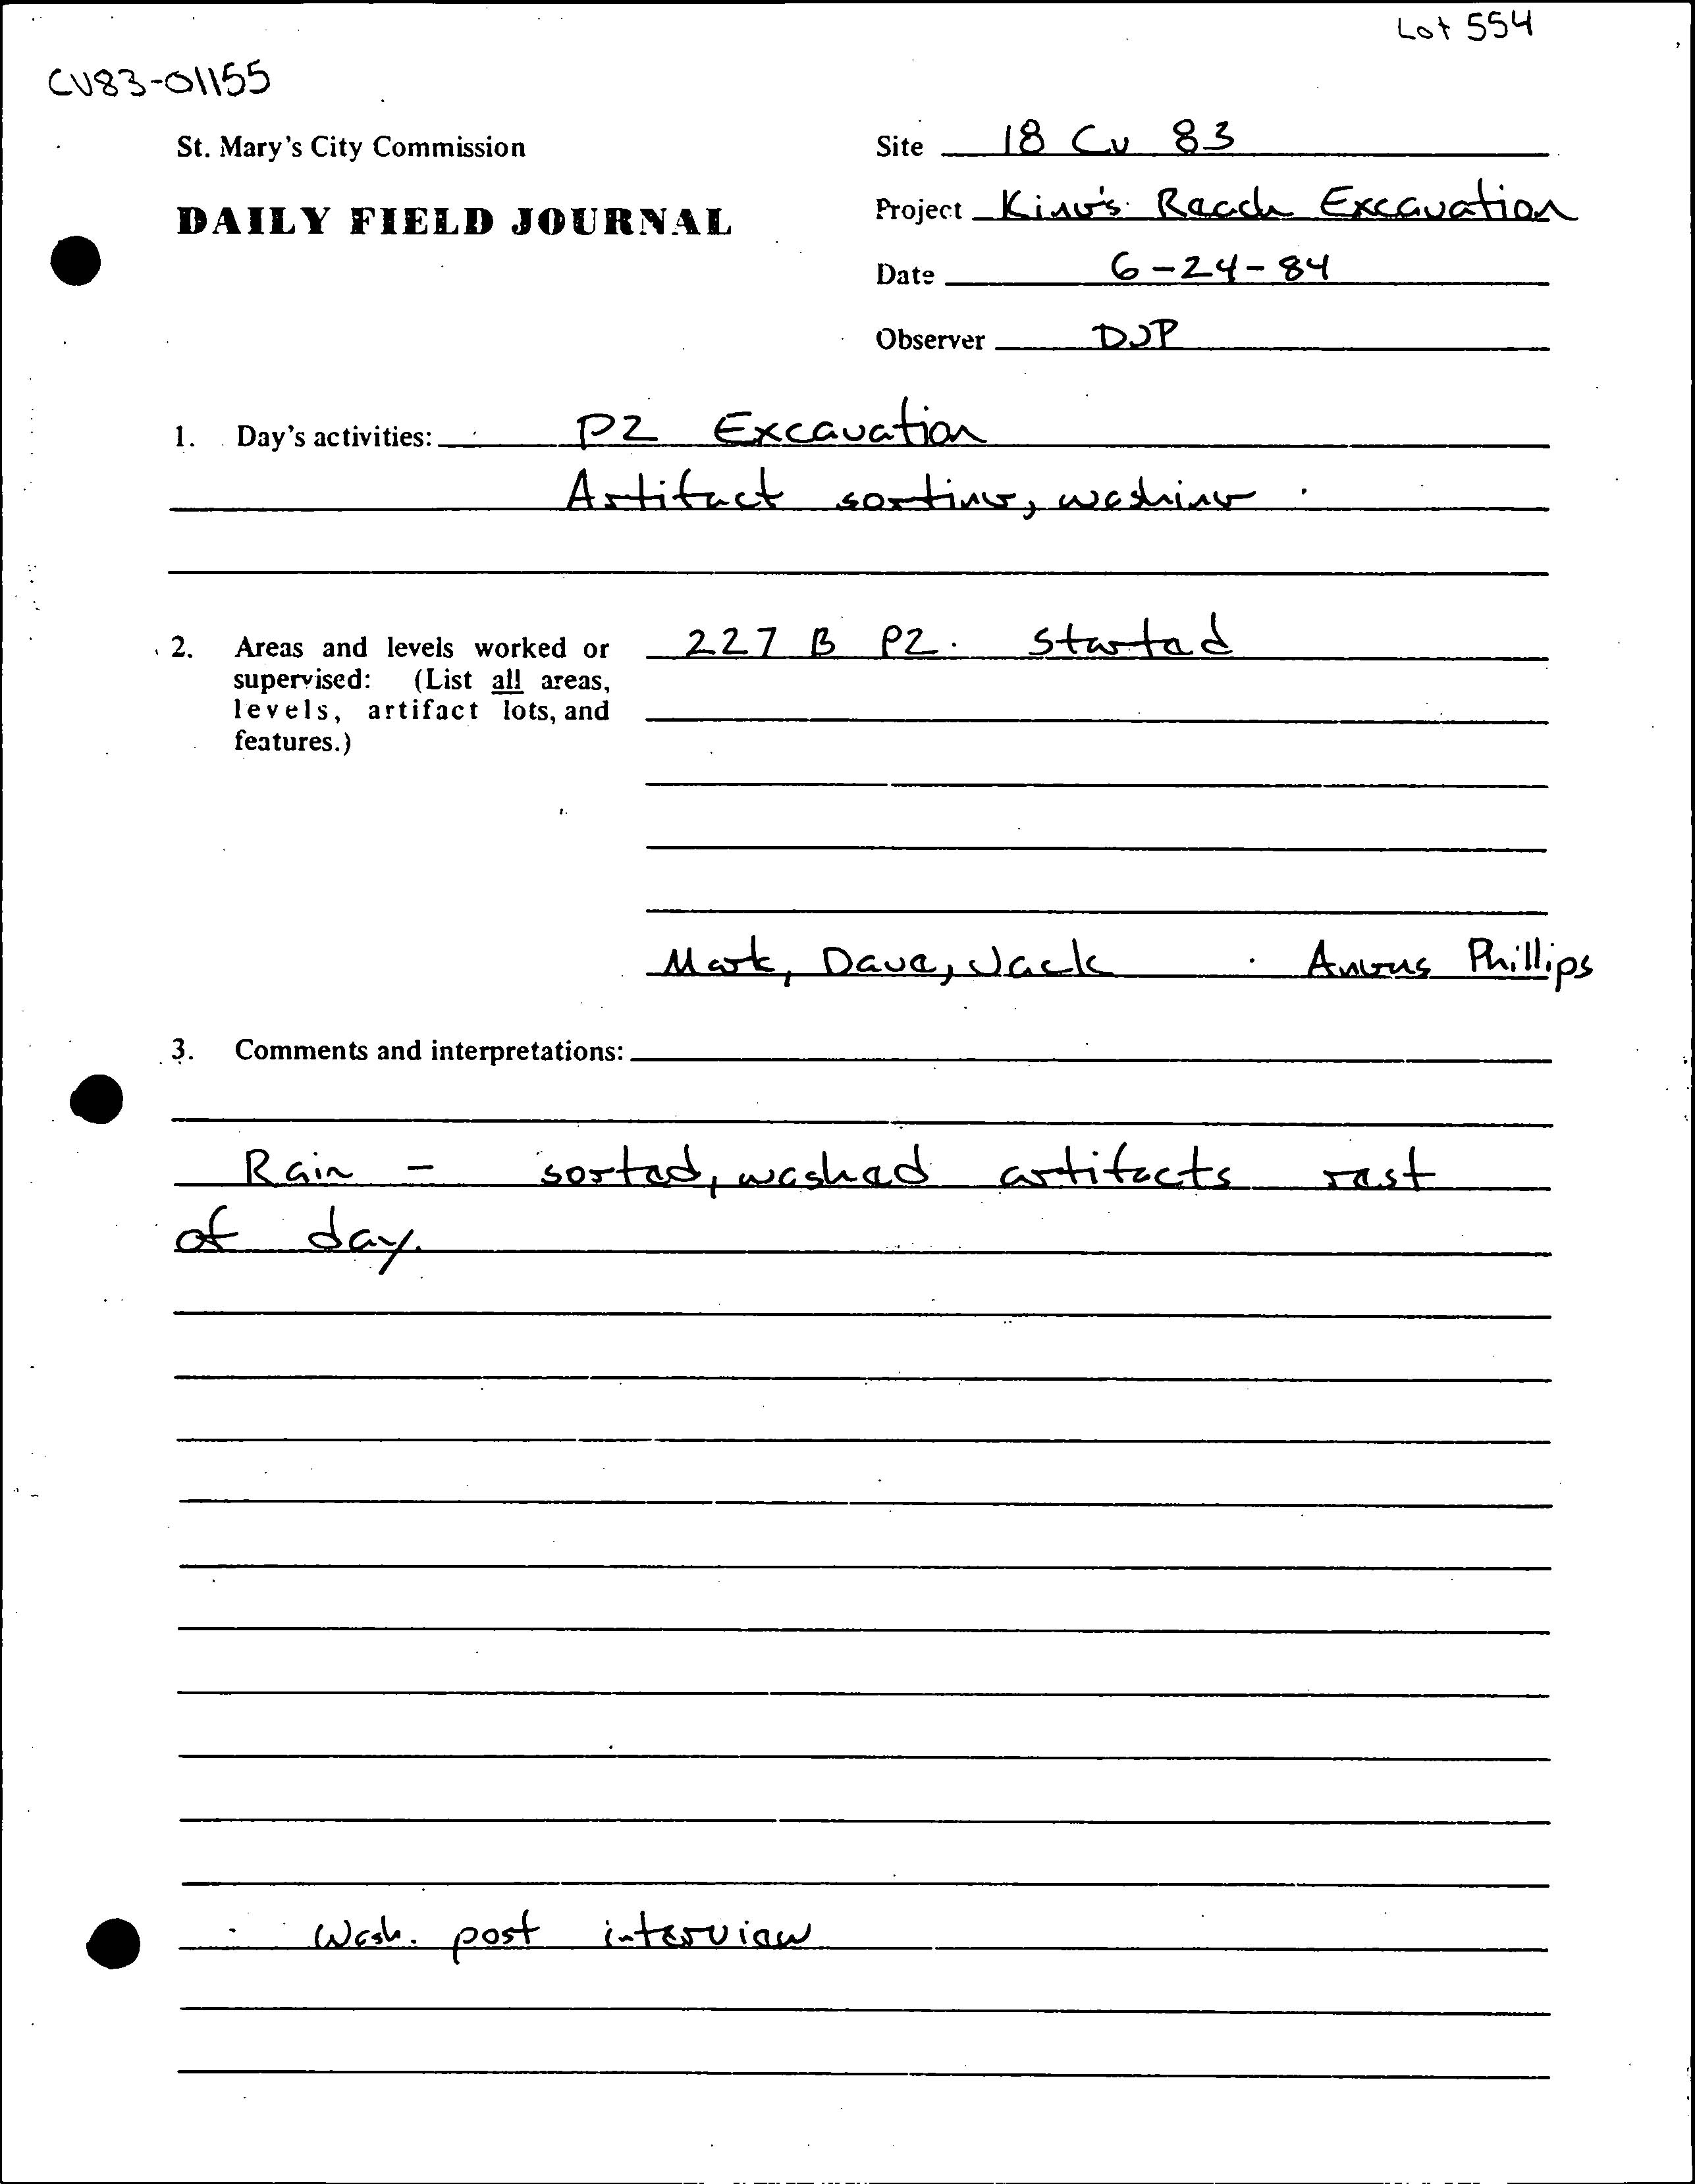 Lot 554
CV83-01155
St. Mary's City Commission
Site 18 Cv 83
DAILY FIELD JOURNAL
Project King's Reach Excavation
Date 6-24-84
Observer DJP
1. Day's activities: P2 Excavation
Artifact sorting, washing
2. Areas and levels worked or
supervised: (List all areas,
levels, artifact lots, and
features.)
227 B P2. Started
Mark, Dave, Jack Angus Phillips
3. Comments and interpretations:
Rain - sorted, washed artifacts rest
of day.
Wash. post interview